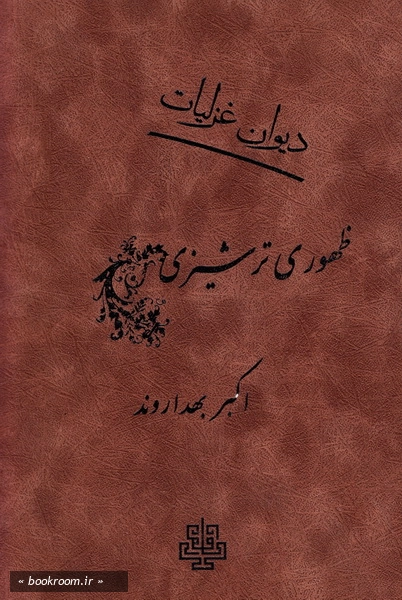 دیوان غزلیات
ظهوری ترشیزی
اکبر بهداروند
« bookroom.ir »